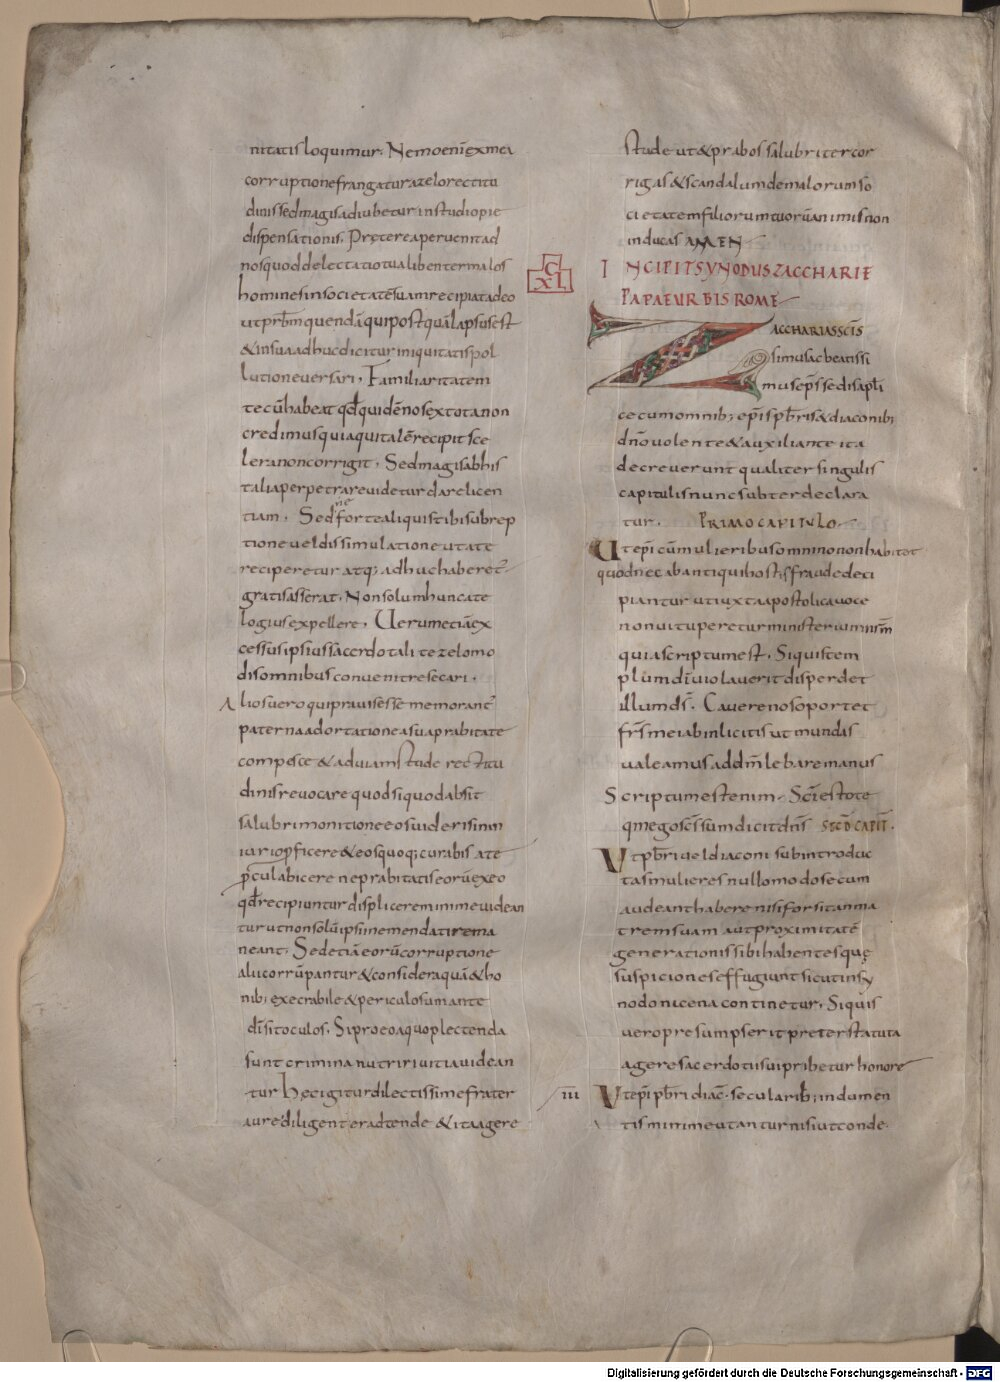 nitatis loquimur. Nemo enī ex mea
corruptione frangatur a zelo rectitu
dinis sed magis adiubetur in studio pie
dispensationis. Pręterea peruenit ad
nos quod delectatio tua libenter malos
homines in societatē suam recipiat adeo
ut prbm quendā qui post quā lapsus est
& in sua adhuc dicitur iniquitatis pol
lutione uersari. Familiaritatem
tecū habeat qđ quidē nos ex tota non
credimus quia qui talē recipit sce
lera non corrigit. Sed magis ab his
talia perpetrare uidetur dare licen
tiam. Sed ne forte aliquis tibi subrep
tione uel dissimulatione ut a te
reciperetur atq; adhuc haberet
gratis asserat. Non solum hunc a te
logius expellere. Uerum etiā ex
cessus ipsius sacerdotali te zelo mo
dis omnibus conuenit resecari.
Alios uero qui praui sesse memorant
paterna adortatione a sua prabitate
compesce & ad uiam stude rectitu
dinis reuocare quod si quod absit
salubri monitione eos uideris in in
iurio pficere & eos quoq; curabis a te
pcul abicere ne prabitatis eorū ex eo
qđ recipiuntur displicere minime uidean
tur ut non solū ipsi inemendati rema
neant. Sed etiā eorū corruptione
alii corrūpantur & considera quā & ho
nib; execrabile & periculosum ante
dī sit oculos. Si pro eo a quo plectenda
sunt crimina nutriri uitia uidean
tur Hęc igitur dilectissime frater
aure diligenter adtende & ita agere
stude ut & prabos salubriter cor
rigas & scandalum de malorum so
cietatem filiorum tuorū animis non
inducas AMEN
CXL
INCIPIT SYNODUS ZACCHARIE
PAPAE URBIS ROME
ZACCHARIAS SCIS
simus ac beatissi
mus eps sedis apli
ce cum omnib; epis pbris & diaconibi
dno uolente & auxiliante ita
decreuerunt qualiter singulis
capitulis nunc subter declara
tur. PRIMO CAPITULO
Ut epi cū mulieribus omnino non habitet
quod nec ab antiqui hostis fraude deci
piantur ut iuxta apostolica uoce
non uituperetur ministerium nrm
quia scriptum est. Si quis tem
plum dī uiolauerit disperdet
illum ds. Cauere nos oportet
frs mei ab inlicitis ut mundas
ualeamus ad dm lebare manus
Scriptum est enim. Sci estote
qm ego scs sum dicit dns SECD CAPIT.
Ut pbri uel diaconi subintroduc
tas mulieres nullo modo secum
audeant habere nisi forsitan ma
trem suam aut proximitatē
generationis sibi habentes quę
suspiciones effugiunt sicut in sy
nodo nicena continetur. Si quis
uero presumpserit preter statuta
agere sacerdotii sui pribetur honore
III Ut epi pbri diac. secularib; indumen
tis minime utantur nisi ut conde
Digitalisierung gefördert durch die Deutsche Forschungsgemeinschaft - DFG